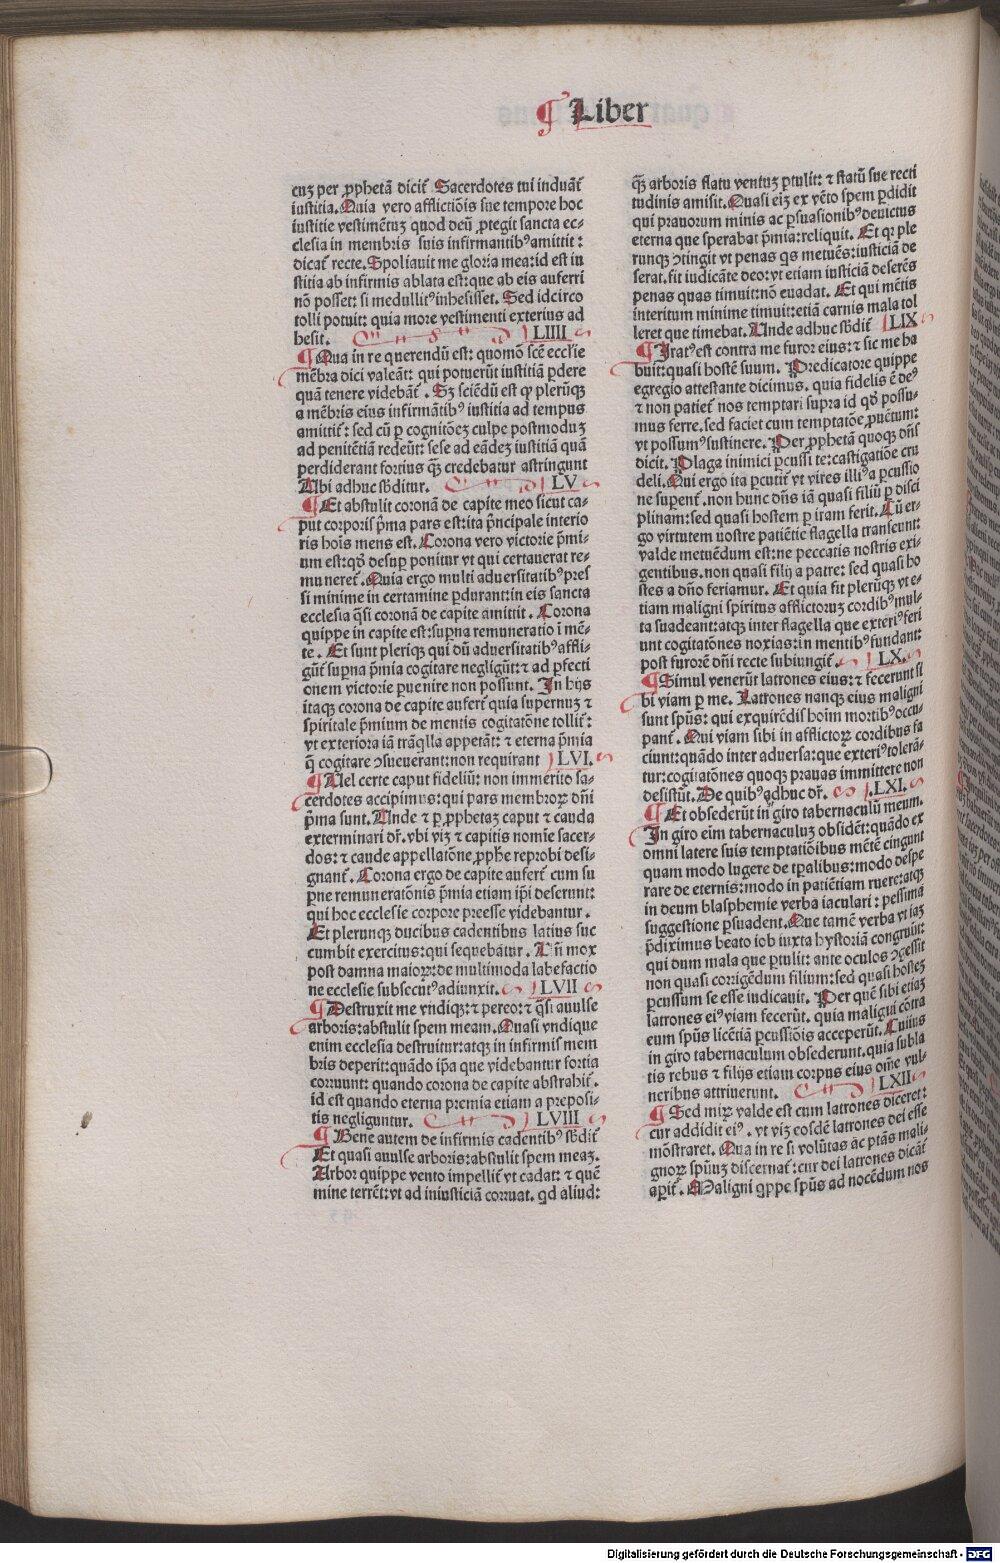 ¶ Liber
cuȝ per ꝓphetā dicit᷑ Sacerdotes tui induāt᷑
iustitia. Quia vero afflictiōis sue tempore hoc
iustitie vestimētuȝ quod deū ꝓtegit sancta ec-
clesia in membris suis infirmantibꝰ amittit:
dicat᷑ recte. Spoliauit me gloria mea: id est iu
stitia ab infirmis ablata est: que ab eis auferri
nō posset: si medullitꝰ inhesisset. Sed idcirco
tolli potuit: quia more vestimenti exterius ad
hesit. LIIII
¶ Qua in re querendū est: quomō scē ecclie
mēbra dici valeāt: qui potuerūt iustitiā ꝑdere
quā tenere videbāt᷑. Sȝ sciēdū est ꝙ plerūqȝ
a mēbris eius infirmātibꝰ iustitia ad tempus
amittit᷑: sed cū ꝑ cognitōeȝ culpe postmoduȝ
ad penitētiā redeūt: sese ad eādeȝ iustitiā quā
perdiderant fortius qȝ̄ credebatur astringunt
Ubi adhuc sb̄ditur. LV
¶ Et abstulit coronā de capite meo sicut ca-
put corporis p̄ma pars est: ita p̄ncipale interio
ris hoīs mens est. Corona vero victorie p̄mi-
um est: qd̄ desuꝑ ponitur vt qui certauerat re-
muneret᷑. Quia ergo multi aduersitatibꝰ pres
si minime in certamine ꝑdurant: in eis sancta
ecclesia q̄si coronā de capite amittit. Corona
quippe in capite est: suꝑna remuneratio ī mē-
te. Et sunt pleriqȝ qui dū aduersitatibꝰ affli-
gūt᷑ suꝑna p̄mia cogitare negligūt: ⁊ ad ꝑfecti
onem victorie ꝑuenire non possunt. In hijs
itaqȝ corona de capite aufert᷑ quia supernuȝ ⁊
spiritale p̄mium de mentis cogitatōne tollit᷑:
vt exteriora iā trāqlla appetāt: ⁊ eterna p̄mia
q̄ cogitare ↄsueuerant: non requirant LVI.
¶ Uel certe caput fideliū: non immerito sa-
cerdotes accipimus: qui pars membroꝝ dn̄i
p̄ma sunt. Unde ⁊ ꝑ ꝓphetaȝ caput ⁊ cauda
exterminari dr̄. vbi viȝ ⁊ capitis nomīe sacer-
dos: ⁊ caude appellatōne ꝓphe reprobi desi-
gnant᷑. Corona ergo de capite aufert᷑ cum su
ꝑne remuneratōnis p̄mia etiam ip̄i deserunt:
qui hoc ecclesie corpore preesse videbantur.
Et plerunqȝ ducibus cadentibus latius suc
cumbit exercitus: qui sequebatur. Un̄ mox
post damna maioꝝ: de multimoda labefactio
ne ecclesie subsecutꝰ adiunxit. LVII
¶ Destruxit me vndiqȝ: ⁊ pereo: ⁊ q̄si auulse
arboris: abstulit spem meam. Quasi vndique
enim ecclesia destruitur: atqȝ in infirmis mem
bris deperit: quādo ip̄a que videbantur fortia
corruunt: quando corona de capite abstrahit᷑.
id est quando eterna premia etiam a preposi-
tis negliguntur. LVIII
¶ Bene autem de infirmis cadentibꝰ sb̄dit᷑
Et quasi auulse arboris: abstulit spem meaȝ.
Arbor quippe vento impellit᷑ vt cadat: ⁊ quē
mine terrēt: vt ad iniusticiā corruat. qd aliud:
qȝ̄ arboris flatu ventuȝ ꝑtulit: ⁊ statū sue recti
tudinis amisit. Quasi eiȝ ex vēto spem ꝑdidit
qui prauorum minis ac ꝑsuasionibꝰ deuictus
eterna que sperabat p̄mia: reliquit. Et qꝛ ple
runqȝ ↄtingit vt penas qs metuēs: iusticiā de
serat. fit iudicāte deo: vt etiam iusticiā deserēs
penas quas timuit: nō euadat. Et qui mētis
interitum minime timuit: etiā carnis mala tol
leret que timebat. Unde adhuc sb̄dit᷑ LIX
¶ Iratꝰ est contra me furor eius: ⁊ sic me ha
buit: quasi hostē suum. Predicatore quippe
egregio attestante dicimus. quia fidelis ē deꝰ
⁊ non patiet᷑ nos temptari supra id qd̄ possu-
mus ferre. sed faciet cum temptatōe ꝓuētum:
vt possumꝰ sustinere. Per ꝓphetā quoqȝ dn̄s
dicit. Plaga inimici ꝑcussi te: castigatiōe cru
deli. Qui ergo ita ꝑcutit᷑ vt vires illiꝰ a ꝑcussio
ne suꝑent᷑. non hunc dn̄s iā quasi filiū ꝑ disci
plinam: sed quasi hostem ꝑ iram ferit. Cū er-
go virtutem nostre patiētie flagella transeunt:
valde metuēdum est: ne peccatis nostris exi-
gentibus. non quasi filij a patre: sed quasi ho
stes a dn̄o feriamur. Et quia fit plerūqȝ vt e-
tiam maligni spiritus afflictoruȝ cordibꝰ mul-
ta suadeant: atqȝ inter flagella que exteriꝰ feri
unt cogitatōnes noxias: in mentibꝰ fundant:
post furorē dn̄i recte subiungit᷑. LX.
¶ Simul venerūt latrones eius: ⁊ fecerunt si
bi viam ꝑ me. Latrones nanqȝ eius maligni
sunt spūs: qui exquirēdis hoīm mortibꝰ occu
pant᷑. Qui viam sibi in afflictoꝝ cordibus fa
ciunt: quādo inter aduersa: que exteriꝰ tolerā-
tur: cogitatōnes quoqȝ prauas immittere non
desistūt. De quibꝰ adhuc dr̄. LXI.
¶ Et obsederūt in giro tabernaculū meum.
In giro eīm tabernaculuȝ obsidēt: quādo ex
omni latere suis temptatiōibus mētē cingunt
quam modo lugere de tꝑalibus: modo despe
rare de eternis: modo in patiētiam ruere: atqȝ
in deum blasphemie verba iaculari: pessima
suggestione ꝑsuadent. Que tamē verba vt iaȝ
p̄diximus beato iob iuxta hystoriā congruūt:
qui dum mala que ꝑtulit: ante oculos ↄgessit
non quasi corrigēdum filium: sed quasi hosteȝ
ꝑcussum se esse iudicauit. Per quē sibi etiaȝ
latrones eiꝰ viam fecerūt. quia maligni cōtra
eum spūs licētiā ꝑcussiōis acceperūt. Cuius
in giro tabernaculum obsederunt. quia subla
tis rebus ⁊ filijs etiam corpus eius om̄e vul-
neribus attriuerunt. LXII
¶ Sed miꝝ valde est cum latrones diceret:
cur addidit eiꝰ. vt viȝ eosdē latrones dei esse
mōstraret. Qua in re si volūtas ac ptās mali-
gnoꝝ spūuȝ discernat᷑: cur dei latrones dicāt᷑
aperit᷑. Maligni qppe spūs ad nocēdum nos